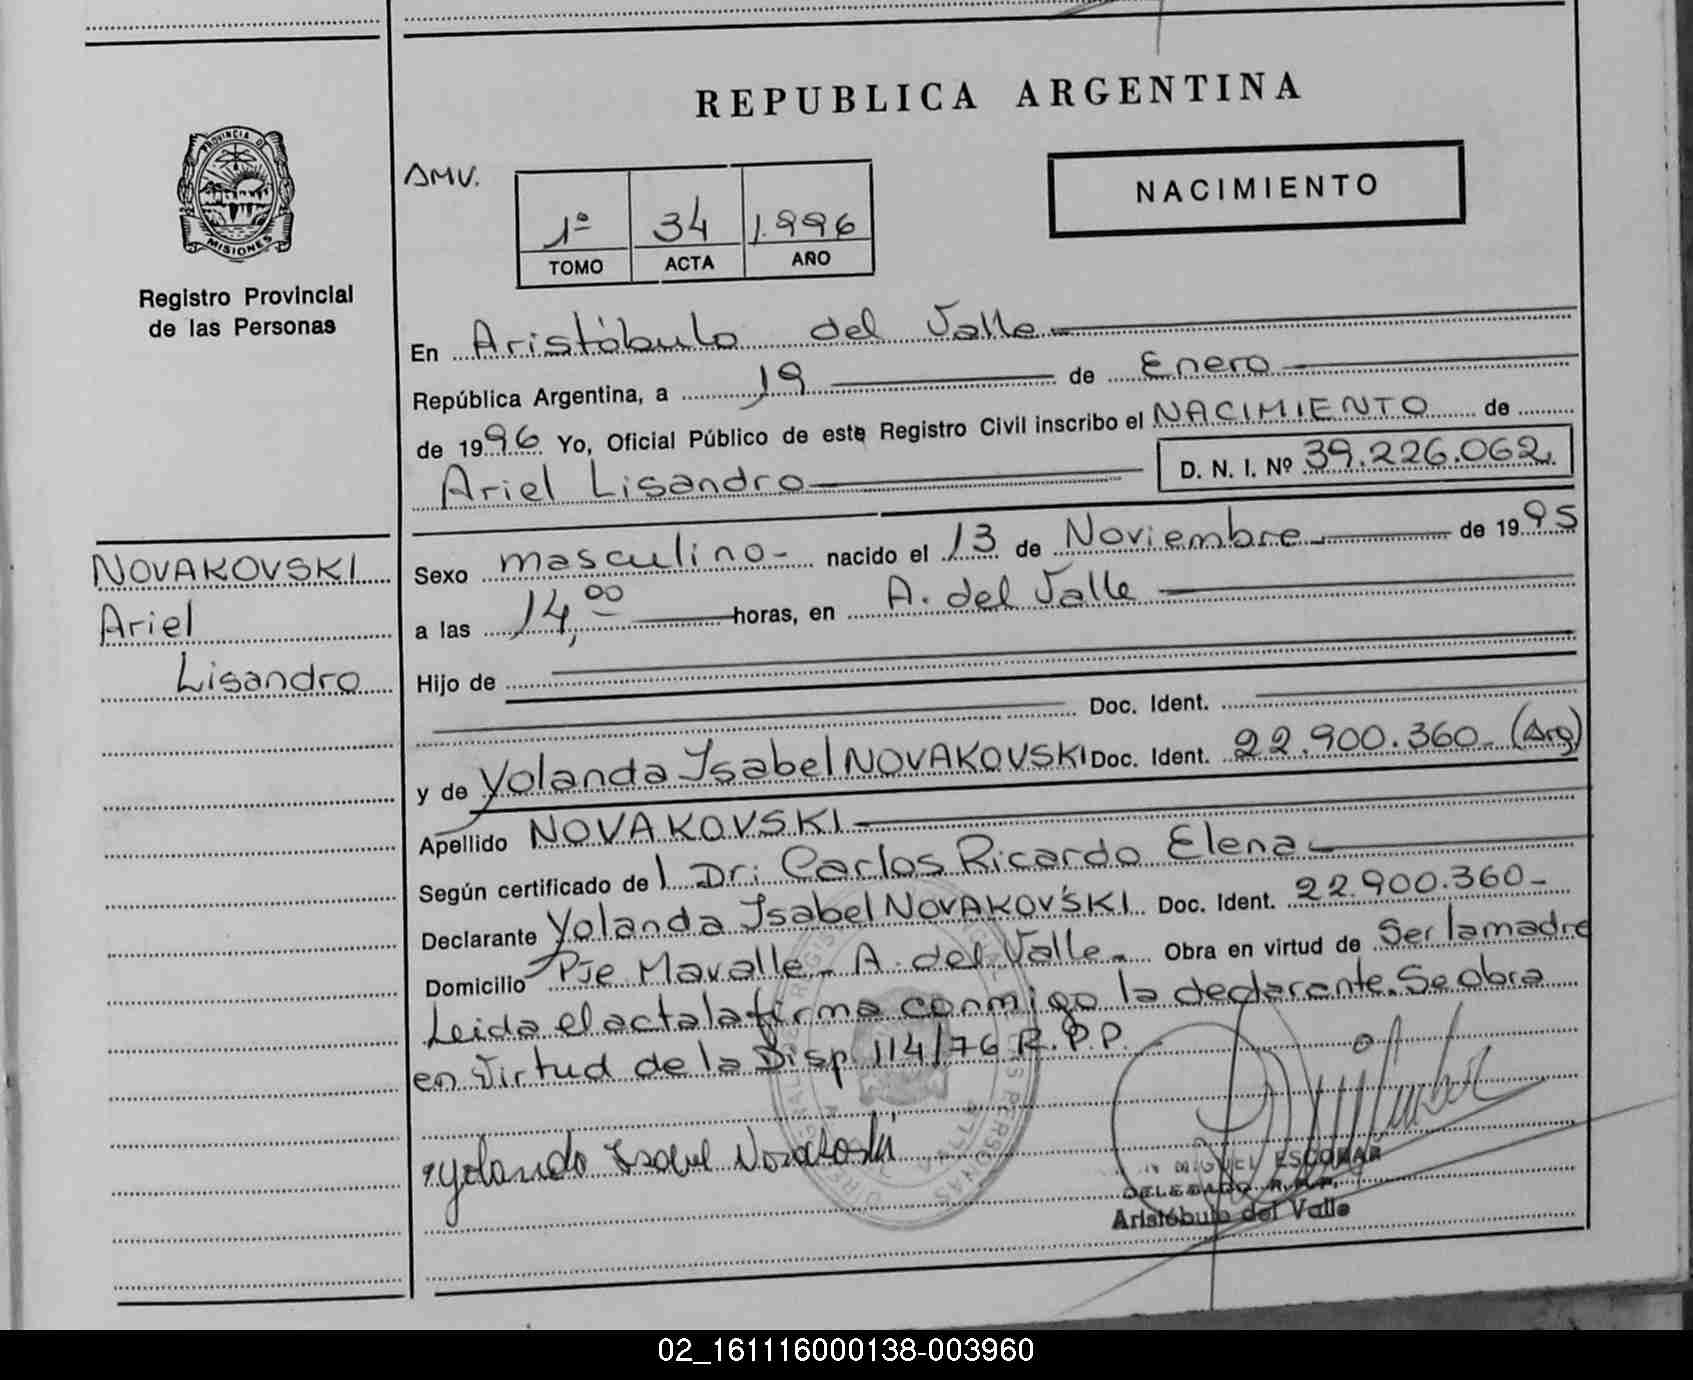 REPUBLICA ARGENTINA
PROVINCIA DE
MISIONES
Registro Provincial
de las Personas
AMV.
1º 34 1.996
TOMO ACTA AÑO
NACIMIENTO
En Aristóbulo del Valle
República Argentina, a 19 de Enero
de 1996 Yo, Oficial Público de este Registro Civil inscribo el NACIMIENTO de
Ariel Lisandro D. N. I. Nº 39.226.062.
NOVAKOVSKI
Ariel
Lisandro
Sexo masculino- nacido el 13 de Noviembre de 1995
a las 14,00 horas, en A. del Valle
Hijo de
Doc. Ident.
y de Yolanda Ysabel NOVAKOVSKI Doc. Ident. 22.900.360- (Arg)
Apellido NOVAKOVSKI
Según certificado del Dr: Carlos Ricardo Elena
Declarante Yolanda Ysabel NOVAKOVSKI Doc. Ident. 22.900.360-
Domicilio Pje Mavalle- A. del Valle- Obra en virtud de Ser la madre
Leida el acta la firma conmigo la declarante. Se obra
en virtud de la Disp. 114/76 R.P.P.
Yolanda Isabel
MIGUEL ESCOBAR
DELEGADO R.P.P.
Aristóbulo del Valle
02_161116000138-003960